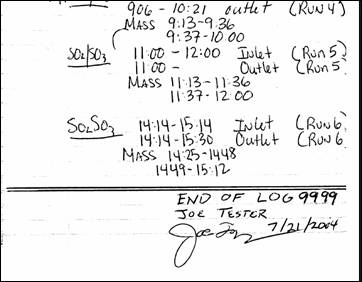 906 - 10:21 outlet (RUN 4)
MASS 9:13-9:36
9:37-10:00
SO2/SO3 11:00 - 12:00 Inlet (Run 5)
11:00 - Outlet (Run 5
MASS 11:13-11:36
11:37-12:00
SO2SO3 14:14-15:14 Inlet (Run 6)
14:14-15:30 Outlet (Run 6
MASS 14:25-1448
1449-15:12
END OF LOG 9999
JOE TESTER
7/21/2004